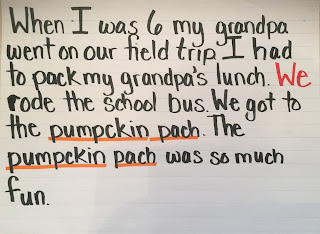 When I was 6 my grandpa
went on our field trip. I had
to pack my grandpa's lunch. We
rode the school bus. We got to
the pumpckin pach. The
pumpckin pach was so much
fun.